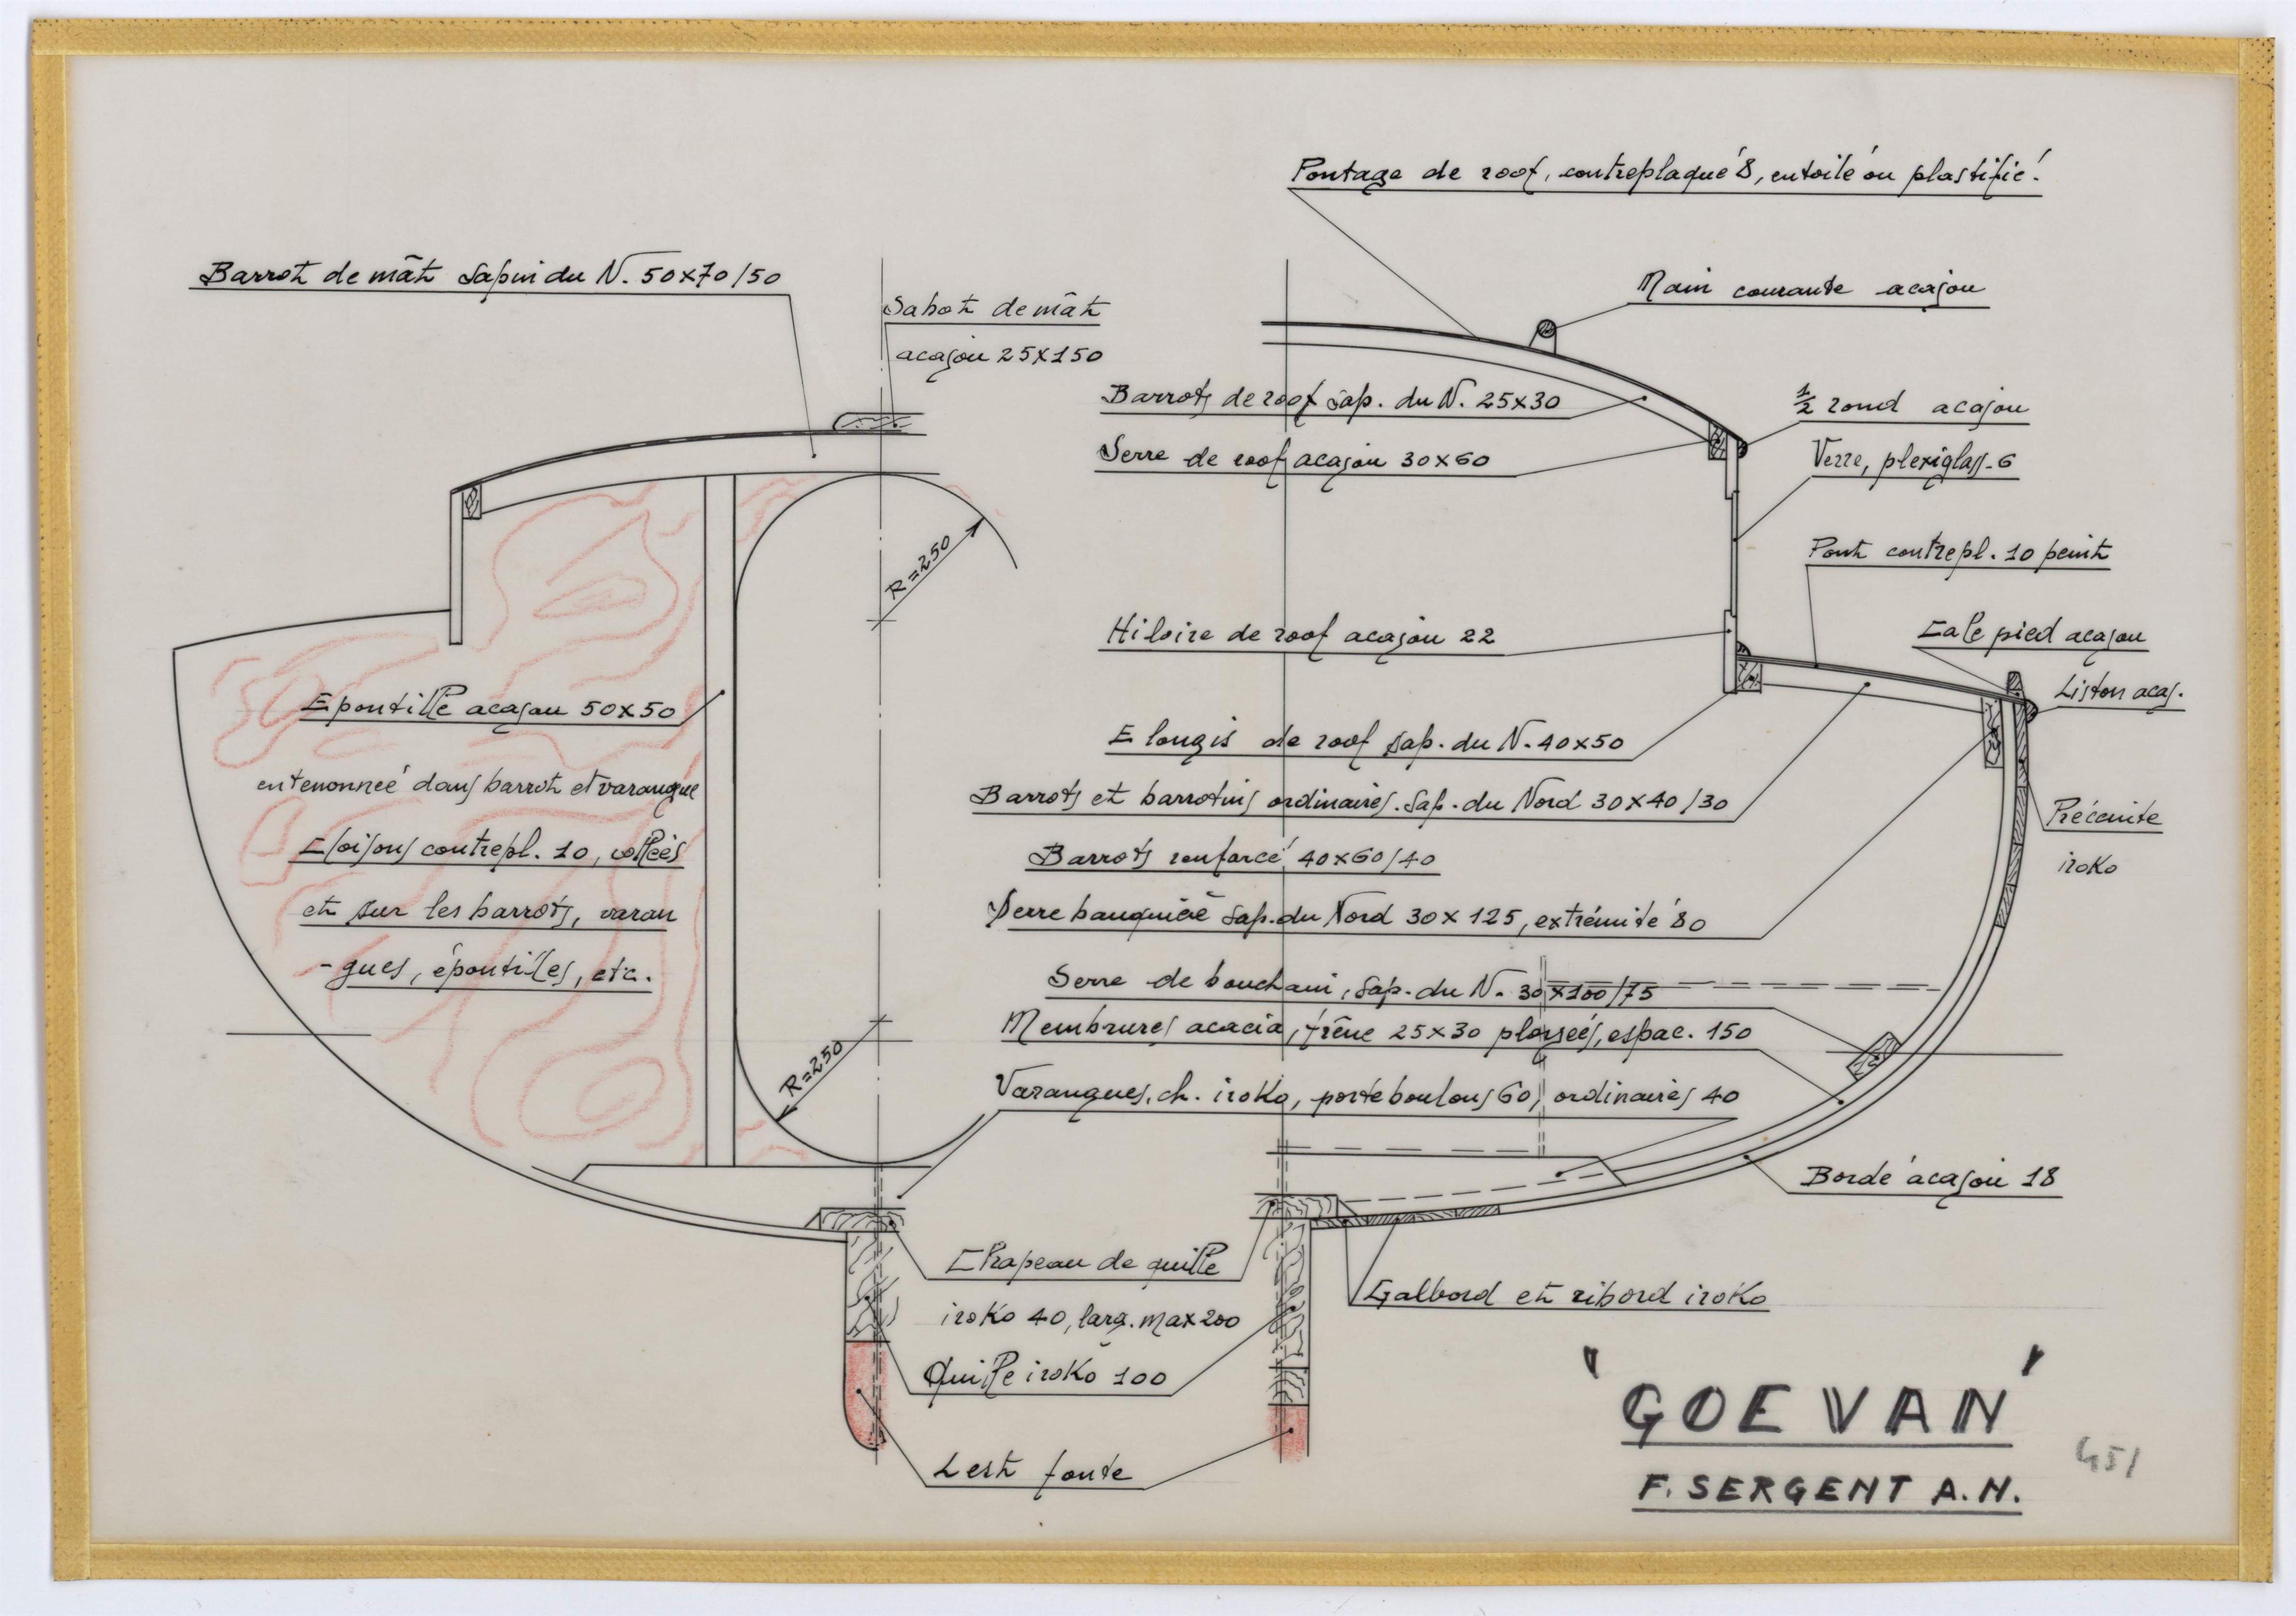 Pontage de roof, contreplaqué 8, entoilé ou plastifié.
Barrot de mât Sapin du N. 50x70/50
Sabot de mât
acajou 25x150
Main courante acajou
Barrots de roof sap. du N. 25x30
½ rond acajou
Serre de roof acajou 30x60
Verre, plexiglass-6
R=250
Pont contrepl. 10 peint
Hiloire de roof acajou 22
Cale pied acajou
Liston acaj.
Epontille acajou 50x50
Elongis de roof sap. du N. 40x50
entenonnée dans barrot et varangue
Barrots et barrotins ordinaires. Sap. du Nord 30x40/30
Préceinte
iroko
Cloisons contrepl. 10, collées
Barrots renforcé 40x60/40
et sur les barrots, varan
Serre bauquière Sap. du Nord 30x125, extrémité 80
-gues, épontilles, etc.
Serre de bouchain, Sap. du N. 30x100/75
Membrures acacia, frêne 25x30 ployées, espac. 150
R=250
Varangues, ch. iroko, porte boulons 60, ordinaires 40
Bordé acajou 18
Chapeau de quille
iroko 40, larg. max 200
Galbord et ribord iroko
Quille iroko 100
Lest fonte
'GOEVAN'
F. SERGENT A.N.
451